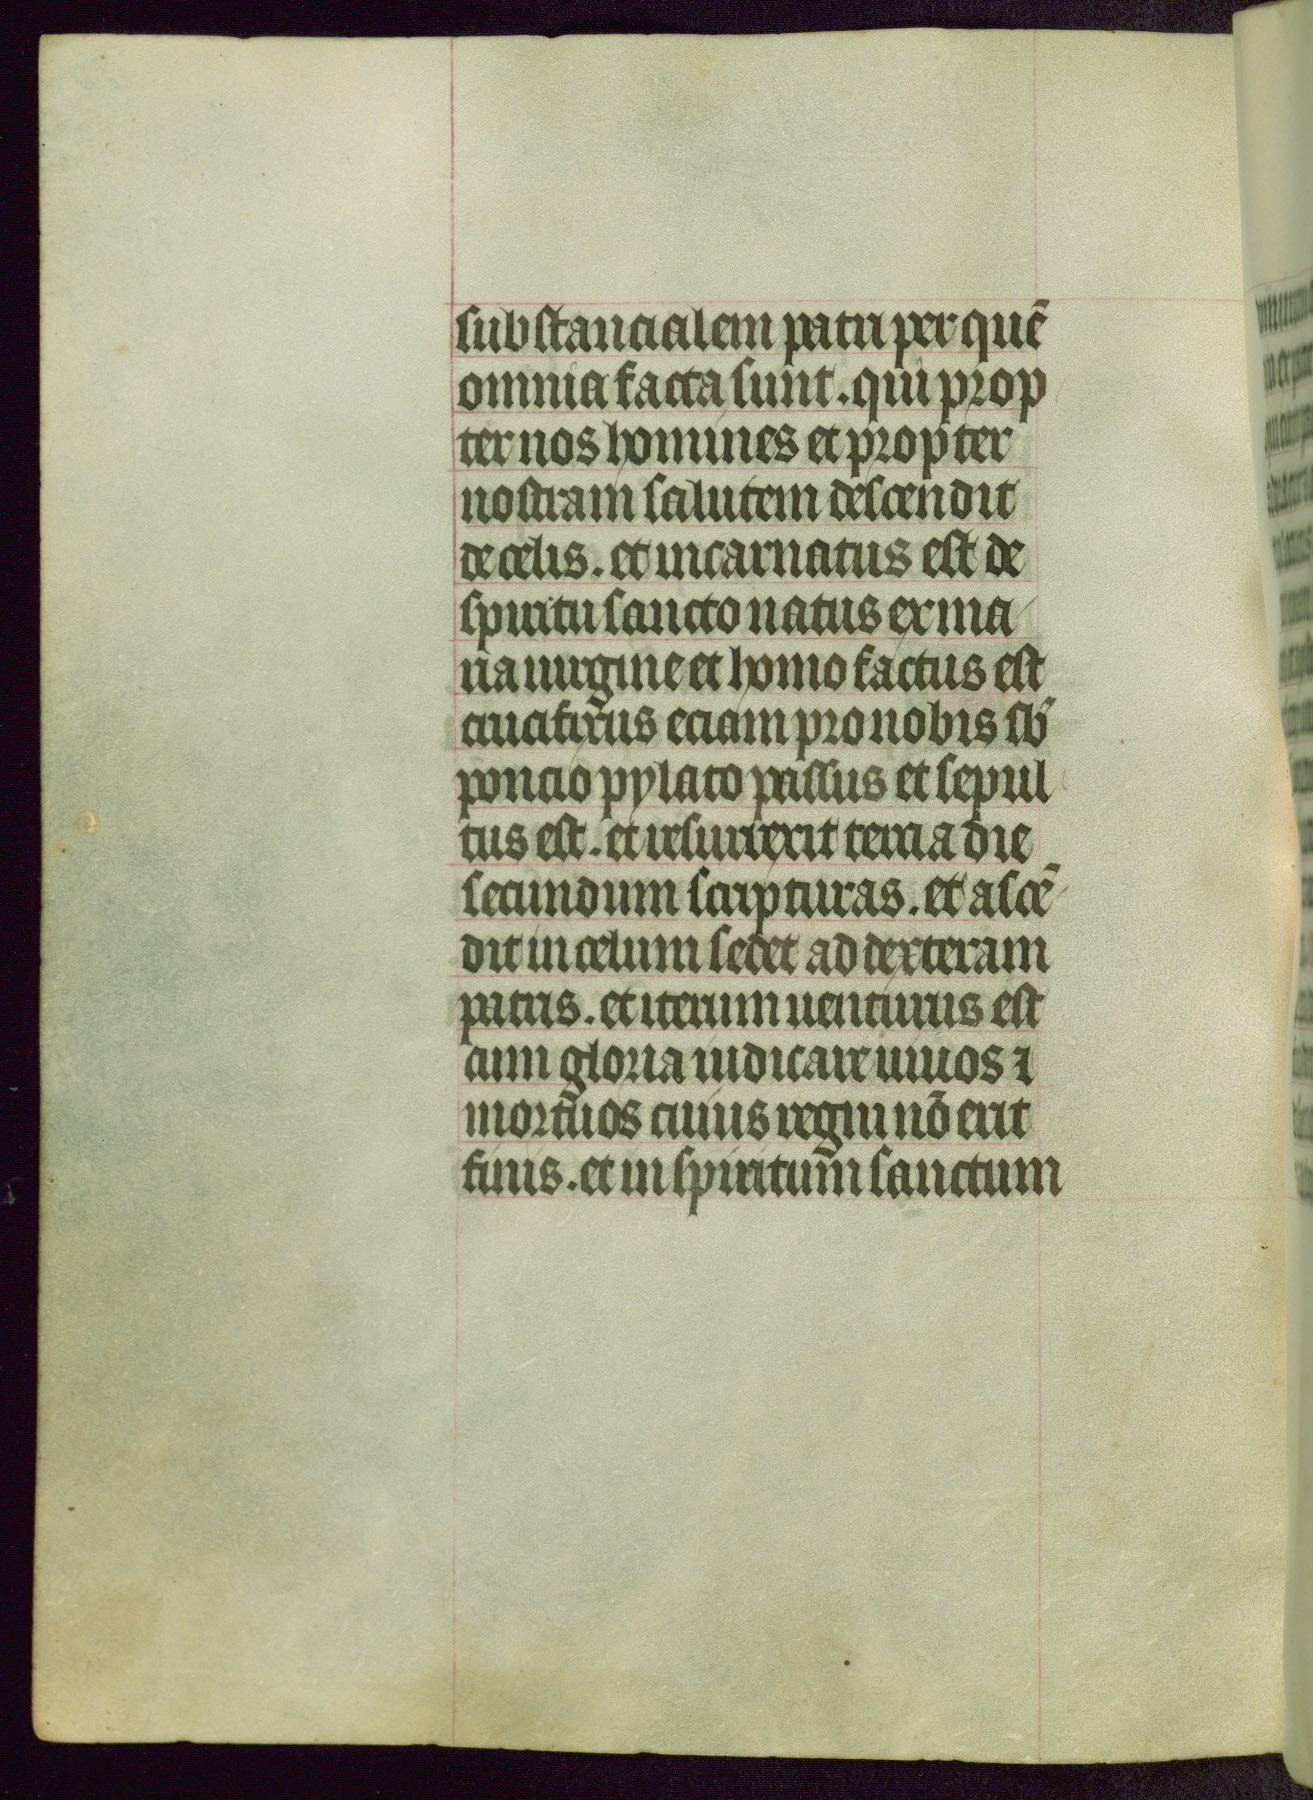 substancialem patri per quē
omnia facta sunt. qui prop
ter nos homines et propter
nostram salutem descendit
de celis. et incarnatus est de
spiritu sancto natus ex ma
ria uirgine et homo factus est
crucifixus eciam pro nobis sb̄
poncio pylato passus et sepul
tus est. et resurrexit tercia die
secundum scripturas. et ascē
dit in celum sedet ad dexteram
patris. et iterum uenturus est
cum gloria iudicare uiuos ⁊
mortuos cuius regni nō erit
finis. et in spiritum sanctum